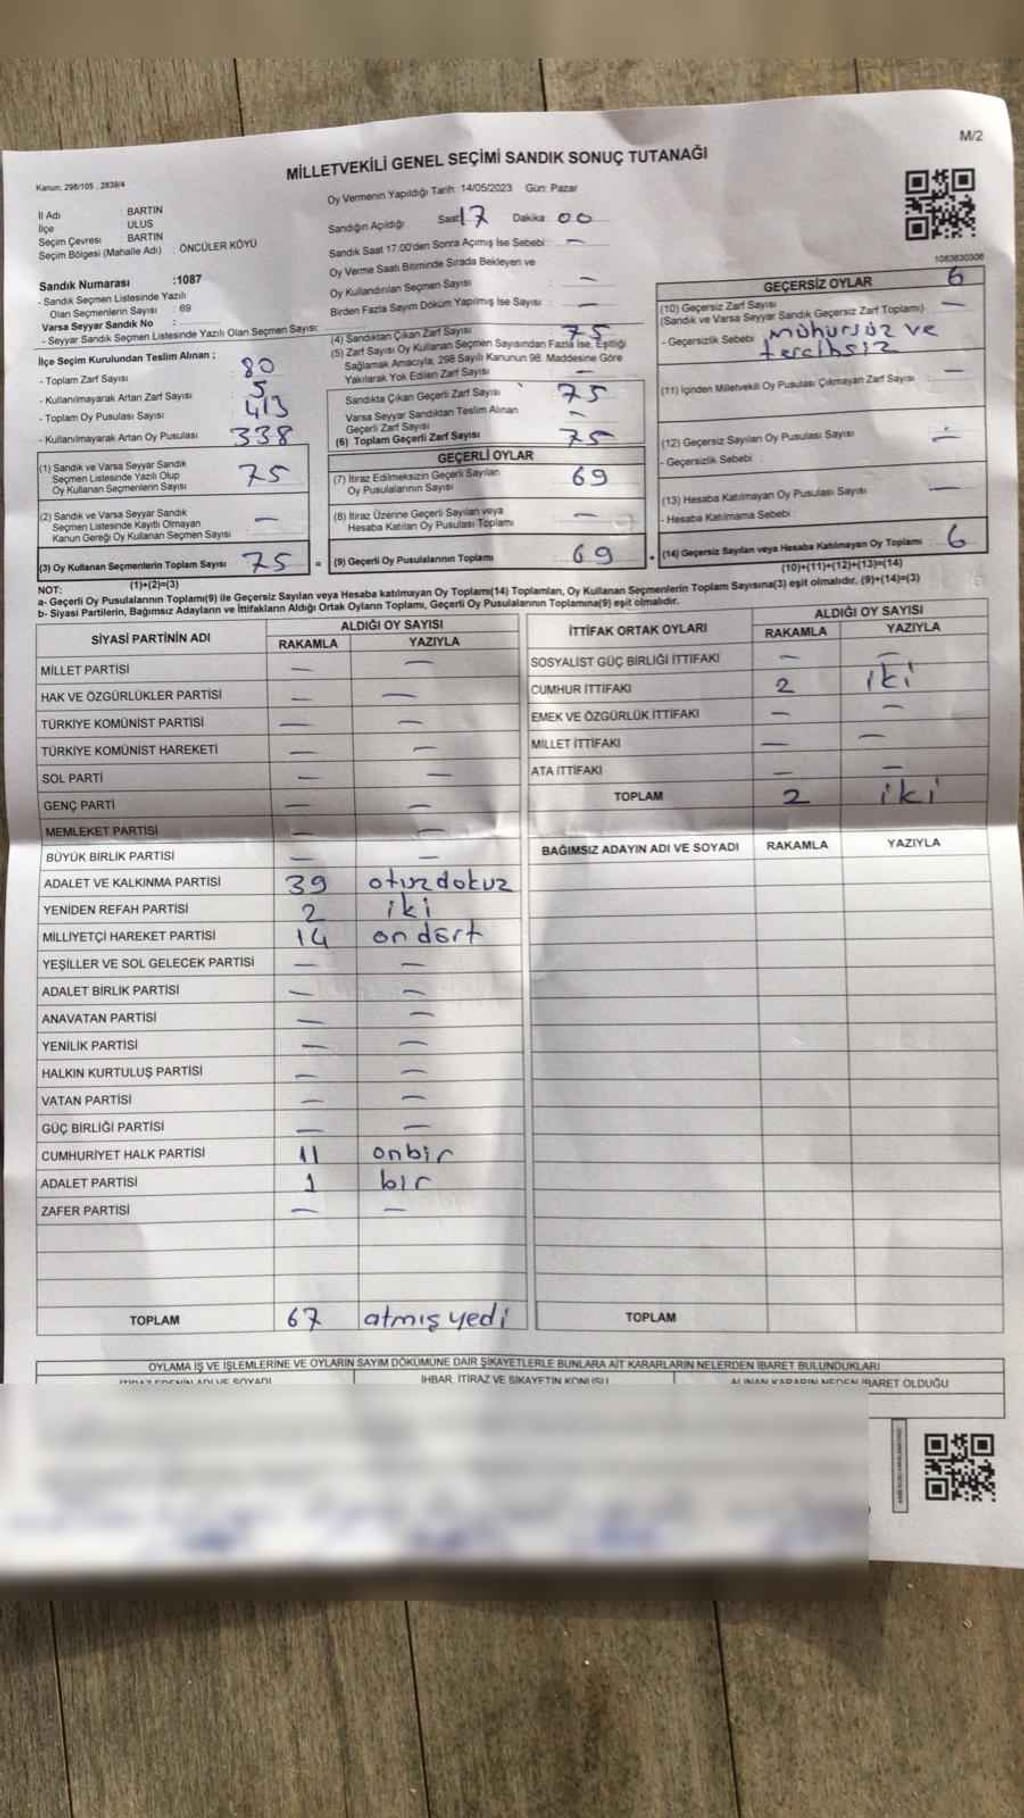 M/2
MİLLETVEKİLİ GENEL SEÇİMİ SANDIK SONUÇ TUTANAĞI
Kanun: 298/105 , 2839/4
Oy Vermenin Yapıldığı Tarih: 14/05/2023 Gün: Pazar
İl Adı : BARTIN
İlçe : ULUS
Seçim Çevresi : BARTIN
Seçim Bölgesi (Mahalle Adı) : ÖNCÜLER KÖYÜ
Sandığın Açıldığı Saat 17 Dakika 00
Sandık Saat 17.00'den Sonra Açımış İse Sebebi : —
Oy Verme Saati Bitiminde Sırada Bekleyen ve
Oy Kullandırılan Seçmen Sayısı : —
Birden Fazla Sayım Döküm Yapılmış İse Sayısı : —
Sandık Numarası :1087
- Sandık Seçmen Listesinde Yazılı
Olan Seçmenlerin Sayısı : 69
Varsa Seyyar Sandık No :
- Seyyar Sandık Seçmen Listesinde Yazılı Olan Seçmen Sayısı:
İlçe Seçim Kurulundan Teslim Alınan ;
- Toplam Zarf Sayısı 80
- Kullanılmayarak Artan Zarf Sayısı 5
- Toplam Oy Pusulası Sayısı 413
- Kullanılmayarak Artan Oy Pusulası 338
(1) Sandık ve Varsa Seyyar Sandık
Seçmen Listesinde Yazılı Olup
Oy Kullanan Seçmenlerin Sayısı 75
(2) Sandık ve Varsa Seyyar Sandık
Seçmen Listesinde Kayıtlı Olmayan
Kanun Gereği Oy Kullanan Seçmen Sayısı —
(3) Oy Kullanan Seçmenlerin Toplam Sayısı 75
(1)+(2)=(3)
(4) Sandıktan Çıkan Zarf Sayısı 75
(5) Zarf Sayısı Oy Kullanan Seçmen Sayısından Fazla İse, Eşitliği
Sağlamak Amacıyla, 298 Sayılı Kanunun 98. Maddesine Göre
Yakılarak Yok Edilen Zarf Sayısı —
Sandıkta Çıkan Geçerli Zarf Sayısı 75
Varsa Seyyar Sandıktan Teslim Alınan
Geçerli Zarf Sayısı —
(6) Toplam Geçerli Zarf Sayısı 75
GEÇERLİ OYLAR
(7) İtiraz Edilmeksizin Geçerli Sayılan
Oy Pusulalarının Sayısı 69
(8) İtiraz Üzerine Geçerli Sayılan veya
Hesaba Katılan Oy Pusulası Toplamı —
= (9) Geçerli Oy Pusulalarının Toplamı 69
1083630306
GEÇERSİZ OYLAR 6
(10) Geçersiz Zarf Sayısı
(Sandık ve Varsa Seyyar Sandık Geçersiz Zarf Toplamı) —
- Geçersizlik Sebebi mühürsüz ve
tercihsiz
(11) İçinden Milletvekili Oy Pusulası Çıkmayan Zarf Sayısı —
(12) Geçersiz Sayılan Oy Pusulası Sayısı —
- Geçersizlik Sebebi :
(13) Hesaba Katılmayan Oy Pusulası Sayısı —
- Hesaba Katılmama Sebebi :
(14) Geçersiz Sayılan veya Hesaba Katılmayan Oy Toplamı 6
(10)+(11)+(12)+(13)=(14)
NOT:
a- Geçerli Oy Pusulalarının Toplamı(9) ile Geçersiz Sayılan veya Hesaba katılmayan Oy Toplamı(14) Toplamları, Oy Kullanan Seçmenlerin Toplam Sayısına(3) eşit olmalıdır. (9)+(14)=(3)
b- Siyasi Partilerin, Bağımsız Adayların ve İttifakların Aldığı Ortak Oyların Toplamı, Geçerli Oy Pusulalarının Toplamına(9) eşit olmalıdır.
SİYASİ PARTİNİN ADI ALDIĞI OY SAYISI
RAKAMLA YAZIYLA
MİLLET PARTİSİ — —
HAK VE ÖZGÜRLÜKLER PARTİSİ — —
TÜRKİYE KOMÜNİST PARTİSİ — —
TÜRKİYE KOMÜNİST HAREKETİ — —
SOL PARTİ — —
GENÇ PARTİ — —
MEMLEKET PARTİSİ — —
BÜYÜK BİRLİK PARTİSİ — —
ADALET VE KALKINMA PARTİSİ 39 otuzdokuz
YENİDEN REFAH PARTİSİ 2 iki
MİLLİYETÇİ HAREKET PARTİSİ 14 ondört
YEŞİLLER VE SOL GELECEK PARTİSİ — —
ADALET BİRLİK PARTİSİ — —
ANAVATAN PARTİSİ — —
YENİLİK PARTİSİ — —
HALKIN KURTULUŞ PARTİSİ — —
VATAN PARTİSİ — —
GÜÇ BİRLİĞİ PARTİSİ — —
CUMHURİYET HALK PARTİSİ 11 onbir
ADALET PARTİSİ 1 bir
ZAFER PARTİSİ — —
TOPLAM 67 atmışyedi
İTTİFAK ORTAK OYLARI ALDIĞI OY SAYISI
RAKAMLA YAZIYLA
SOSYALİST GÜÇ BİRLİĞİ İTTİFAKI — —
CUMHUR İTTİFAKI 2 iki
EMEK VE ÖZGÜRLÜK İTTİFAKI — —
MİLLET İTTİFAKI — —
ATA İTTİFAKI — —
TOPLAM 2 iki
BAĞIMSIZ ADAYIN ADI VE SOYADI RAKAMLA YAZIYLA
TOPLAM
OYLAMA İŞ VE İŞLEMLERİNE VE OYLARIN SAYIM DÖKÜMÜNE DAİR ŞİKAYETLERLE BUNLARA AİT KARARLARIN NELERDEN İBARET BULUNDUKLARI
İTİRAZ EDENİN ADI VE SOYADI İHBAR, İTİRAZ VE ŞİKAYETİN KONUSU ALINAN KARARIN NEDEN İBARET OLDUĞU